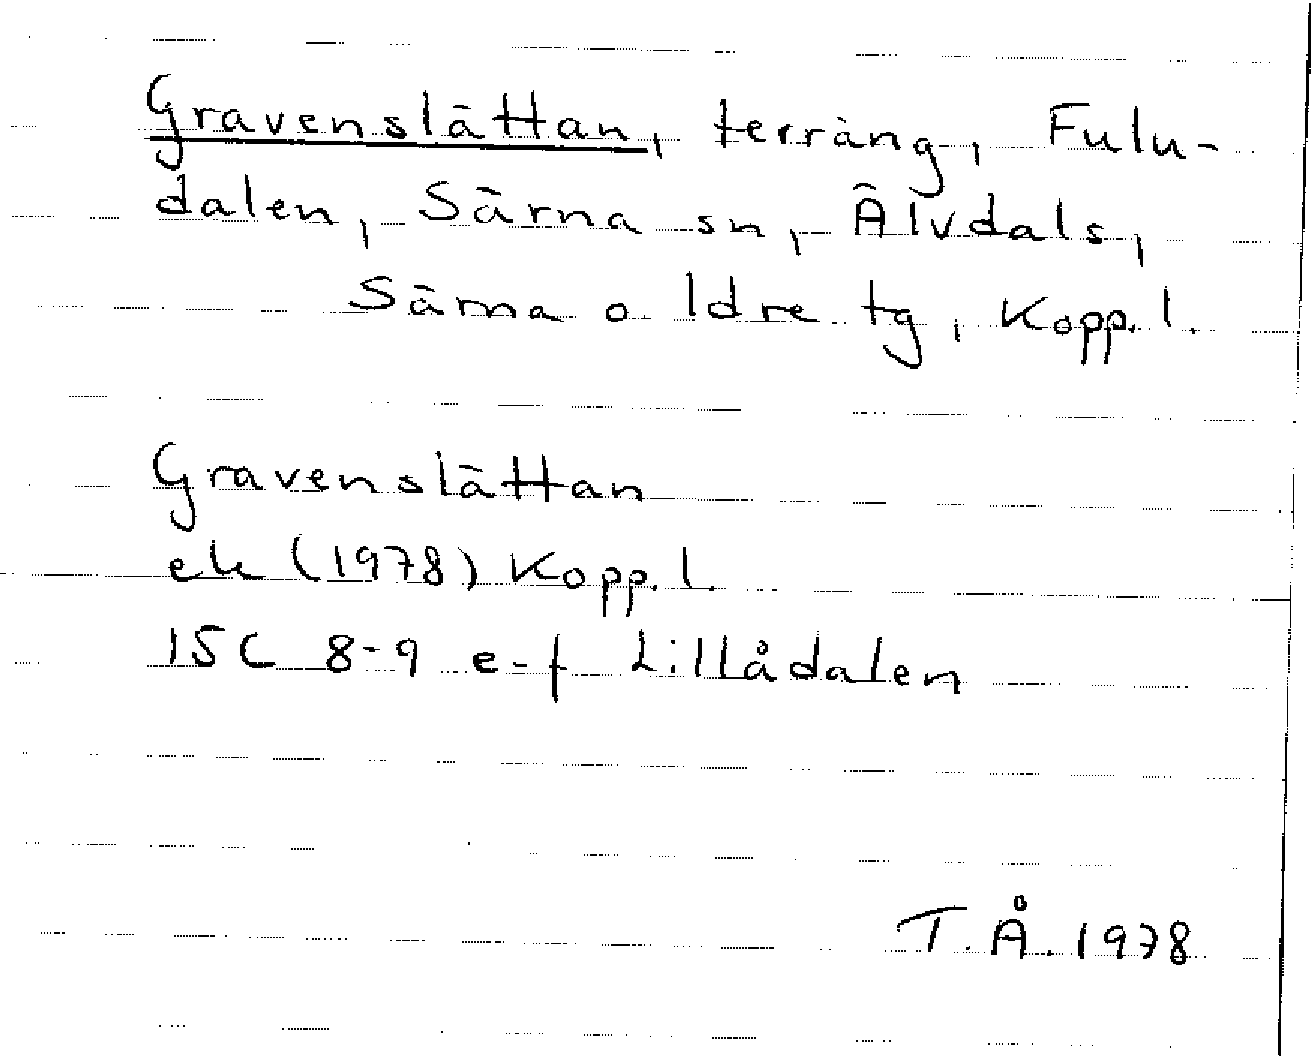 Gravenslättan, terräng, Fulu-
dalen, Särna sn, Älvdals,
Särna o Idre tg, Kopp. l.
Gravenslättan
ek (1978) Kopp. l.
15C 8-9 e-f Lillådalen
T.Å. 1978